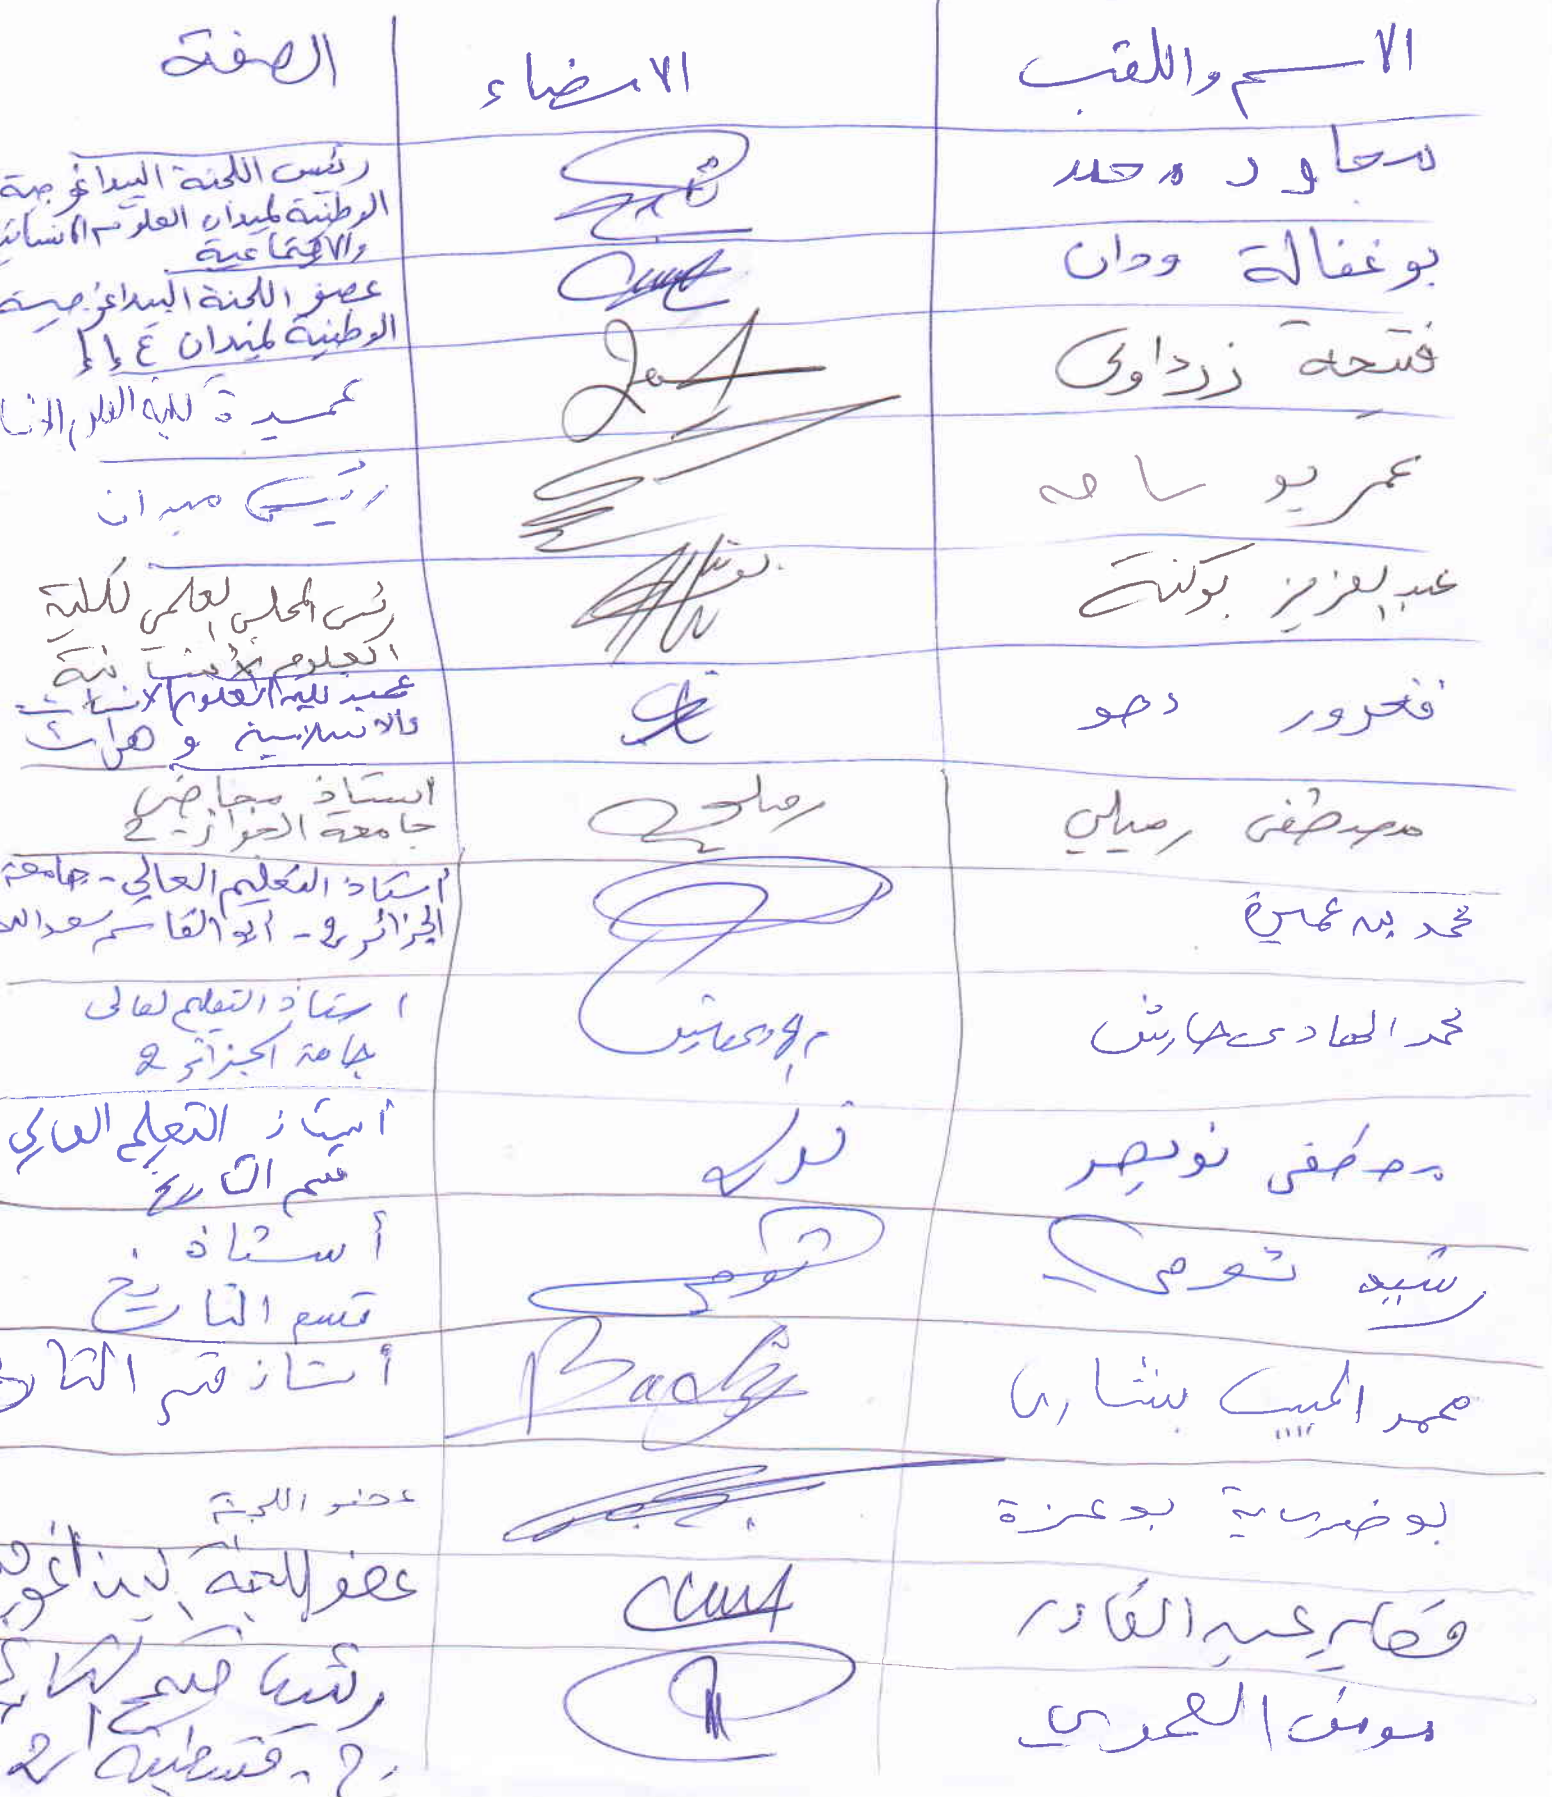 الاسم واللقب الامضاء الصفة
محمد رئيس اللجنة البيداغوجية
الوطنية لميدان العلوم الانسانية
والاجتماعية
بوغفالة ودان عضو اللجنة البيداغوجية
الوطنية لميدان ع إ إ
فتيحة زرداوي عميدة كلية العلوم الانسا
عمر بو ساحة رئيس ميدان
عبد العزيز بوكنة رئيس المجلس العلمي لكلية
العلوم الانسانية
فغرور دحو عميد كلية العلوم الانسانية
والاسلامية وهران
مصطفى رميلي رميلي أستاذ محاضر
جامعة الجزائر 2
محمد بن عميرة أستاذ التعليم العالي - جامعة
الجزائر 2 - أبو القاسم سعد الله
محمد الهادي حارش استاذ التعليم العالي
جامعة الجزائر 2
مصطفى نويصر أستاذ التعليم العالي
قسم التاريخ
رشيد تومي تومي أستاذ
قسم التاريخ
محمد الحبيب بشاري أستاذ قسم التاريخ
بوضرساية بوعزة عضو اللجنة
عبد القادر عضو اللجنة البيداغوجية
رئيس قسم التاريخ
ج. قسنطينة 2